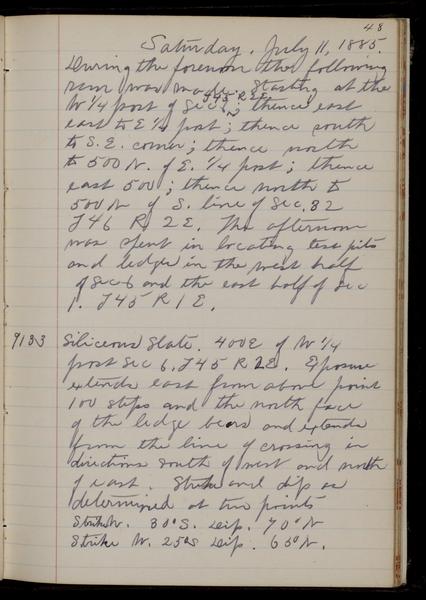 48
Saturday. July 11, 1885.
During the forenoon the following
run was made. Starting at the
W 1/4 post of Sec 6, T45 R2E; thence east
east to E 1/4 post; thence south
to S. E. corner; thence north
to 500 N. of E. 1/4 post; thence
east 500; thence north to
500 N of S. line of Sec. 32
T46 R 2E. The afternoon
was spent in locating test pits
and ledges in the west half
of Sec 6 and the east half of Sec
1. T45 R 1 E.
9133 Siliceous Slate. 400 E of W 1/4
post Sec 6, T45 R 2E. Exposure
extends east from above point
100 steps and the north face
of the ledge bears and extends
from the line of crossing in
directions south of west and north
of east. Strike and dip as
determined at two points
Strike W. 30° S. Dip. 70° N
Strike W. 25° S Dip. 65° N.